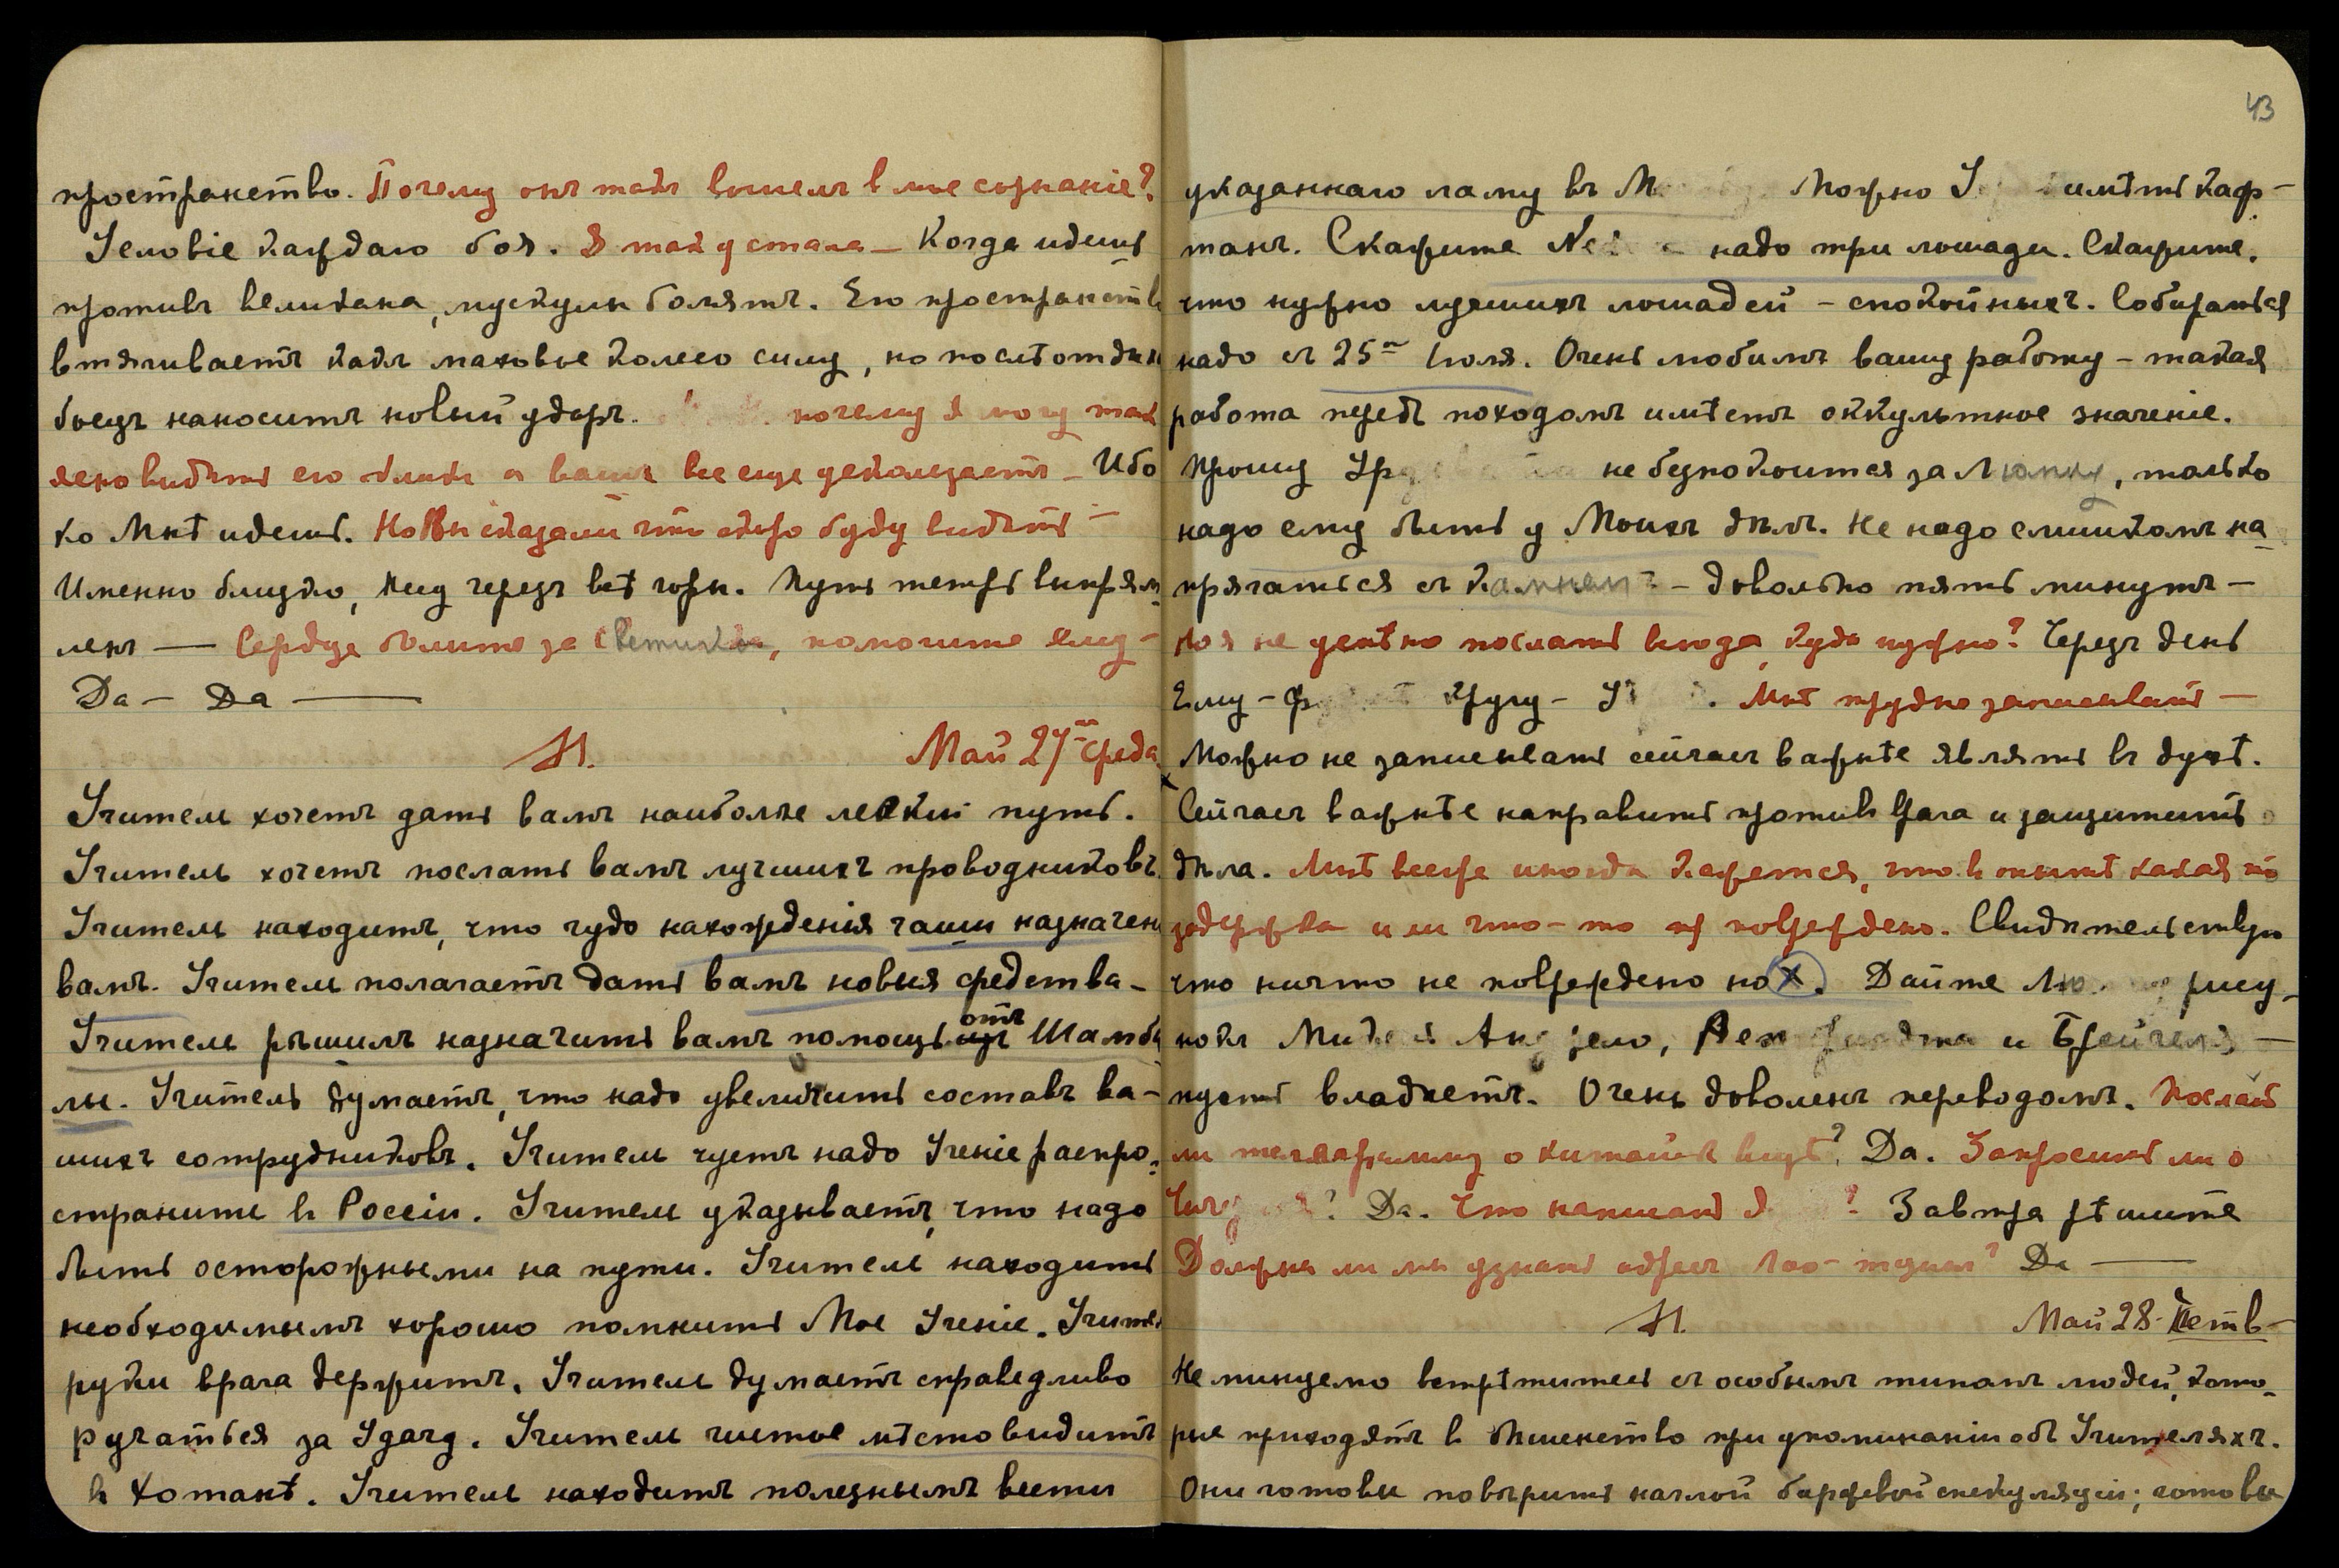 пространство. Почему онъ такъ вошелъ в мое сознаніе?
Условіе каждаго боя. Я так устала — Когда идешь
противъ великана, мускулы болятъ. Его пространств
втягиваетъ какъ маховое колесо силу, но послѣ отдых
боецъ наноситъ новый ударъ. почему я могу так
ясно видѣть его а вашъ все еще ускользаетъ — Ибо
ко Мнѣ идешь. Но Вы сказали что скоро буду видѣть —
Именно близко, иду через всѣ горы. Путь теперь выпрям-
ленъ — Сердце болит за Светика, помогите ему —
Да — Да —
Май 27го среда
Учитель хочетъ дать вамъ наиболѣе легкий путь.
Учитель хочетъ послать вамъ лучшихъ проводниковъ.
Учитель находитъ, что чудо нахожденія чаши назначен
вамъ. Учитель полагаетъ дать вамъ новыя средства —
Учитель рѣшилъ назначить вамъ помощь отъ Шамба
лы. Учитель думаетъ, что надо увеличить составъ ва-
шихъ сотрудниковъ. Учитель чуетъ надо Ученіе распро-
странить в Россіи. Учитель указываетъ, что надо
быть осторожными на пути. Учитель находитъ
необходимымъ хорошо помнить Мое Ученіе. Учитель
руки врага держитъ. Учитель думаетъ справедливо
ручаться за Удачу. Учитель чистое мѣсто видитъ
в Хотанѣ. Учитель находитъ полезнымъ вести
43
указаннаго ламу въ М Можно У имѣть каф-
танъ. Скажите надо три лошади. Скажите,
что нужно лучшихъ лошадей — спокойныхъ. Собираться
надо съ 25го Іюля. Очень любилъ вашу работу — такая
работа передъ походомъ имѣетъ оккультное значеніе.
Прошу не безпокоится за Люмку, только
надо ему быть у Моихъ дѣлъ. Не надо слишкомъ на-
прягаться съ камнемъ — довольно пять минутъ —
но я не успѣю послать всюда, куда нужно? Черезъ день
Ему — кругу — Мнѣ трудно записывать —
Можно не записывать сейчасъ важнѣе являть въ духѣ.
Сейчасъ важнѣе направить противъ Врага и защитить
дѣла. Мнѣ все же иногда кажется, что в опытѣ какая то
задержка или что-то повреждено. Свидѣтельствую
что ничто не повреждено но X. Дайте рису-
нокъ Микель Анджело, и Брейгеля —
пусть владѣетъ. Очень доволенъ переводомъ. Послать
ли телеграмму о китайск визѣ? Да. Запросить ли о
? Да. Что написать ? Завтра рѣшите
Должны ли мы узнать адресъ Да —
Май 28. Четв —
Неминуемо встрѣтитесь съ особымъ типомъ людей, кото-
рые приходятъ в бѣшенство при упоминаніи объ Учителяхъ.
Они готовы повѣрить наглой биржевой спекуляціи; готовы